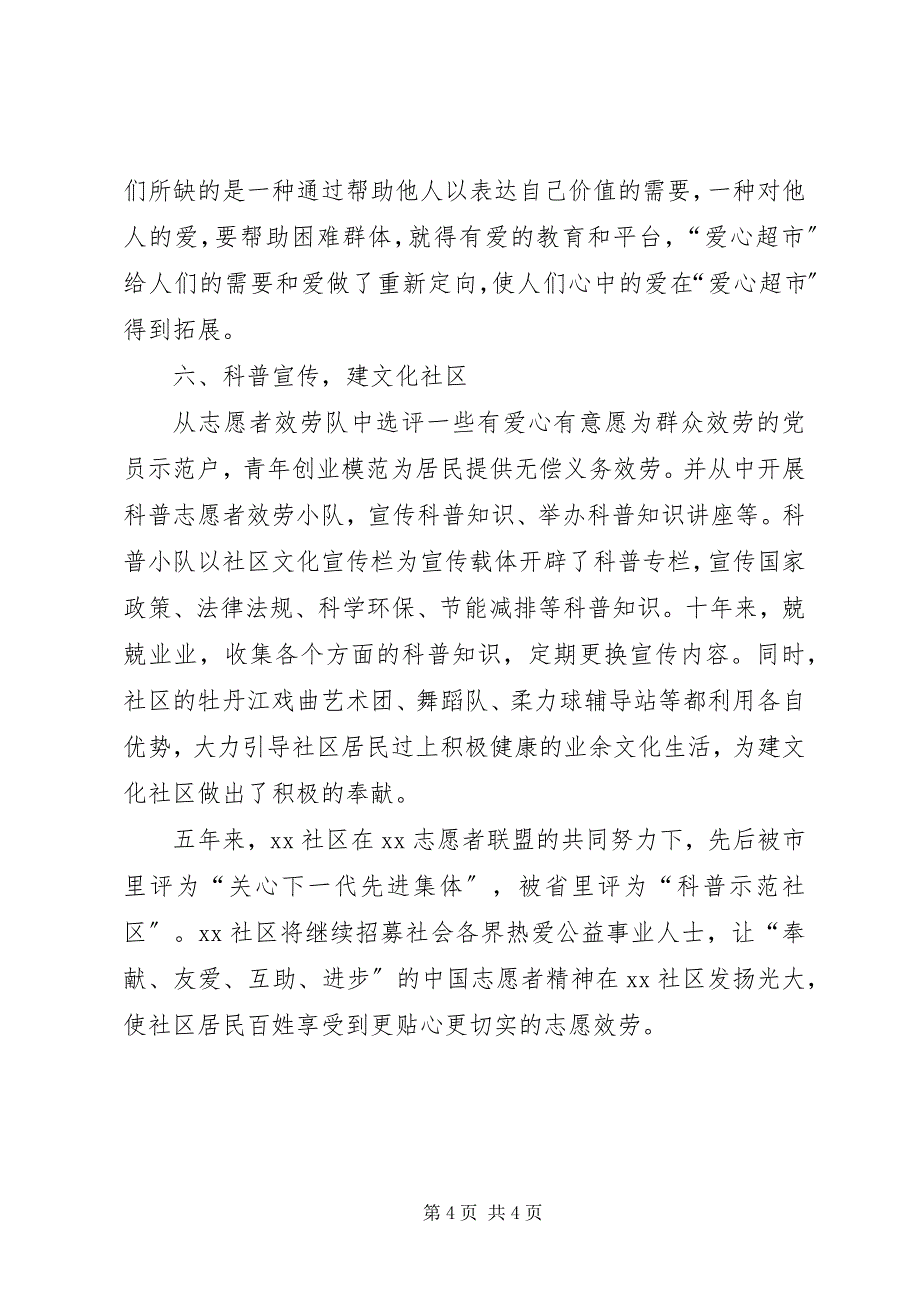 们所缺的是一种通过帮助他人以表达自己价值的需要，一种对他
人的爱，要帮助困难群体，就得有爱的教育和平台，“爱心超市〞
给人们的需要和爱做了重新定向，使人们心中的爱在“爱心超市〞
得到拓展。
六、科普宣传，建文化社区
从志愿者效劳队中选评一些有爱心有意愿为群众效劳的党
员示范户，青年创业模范为居民提供无偿义务效劳。并从中开展
科普志愿者效劳小队，宣传科普知识、举办科普知识讲座等。科
普小队以社区文化宣传栏为宣传载体开辟了科普专栏，宣传国家
政策、法律法规、科学环保、节能减排等科普知识。十年来，兢
兢业业，收集各个方面的科普知识，定期更换宣传内容。同时，
社区的牡丹江戏曲艺术团、舞蹈队、柔力球辅导站等都利用各自
优势，大力引导社区居民过上积极健康的业余文化生活，为建文
化社区做出了积极的奉献。
五年来，xx 社区在 xx 志愿者联盟的共同努力下，先后被市
里评为“关心下一代先进集体〞，被省里评为“科普示范社
区〞。xx 社区将继续招募社会各界热爱公益事业人士，让“奉
献、友爱、互助、进步〞的中国志愿者精神在 xx 社区发扬光大，
使社区居民百姓享受到更贴心更切实的志愿效劳。
第 4 页 共 4 页